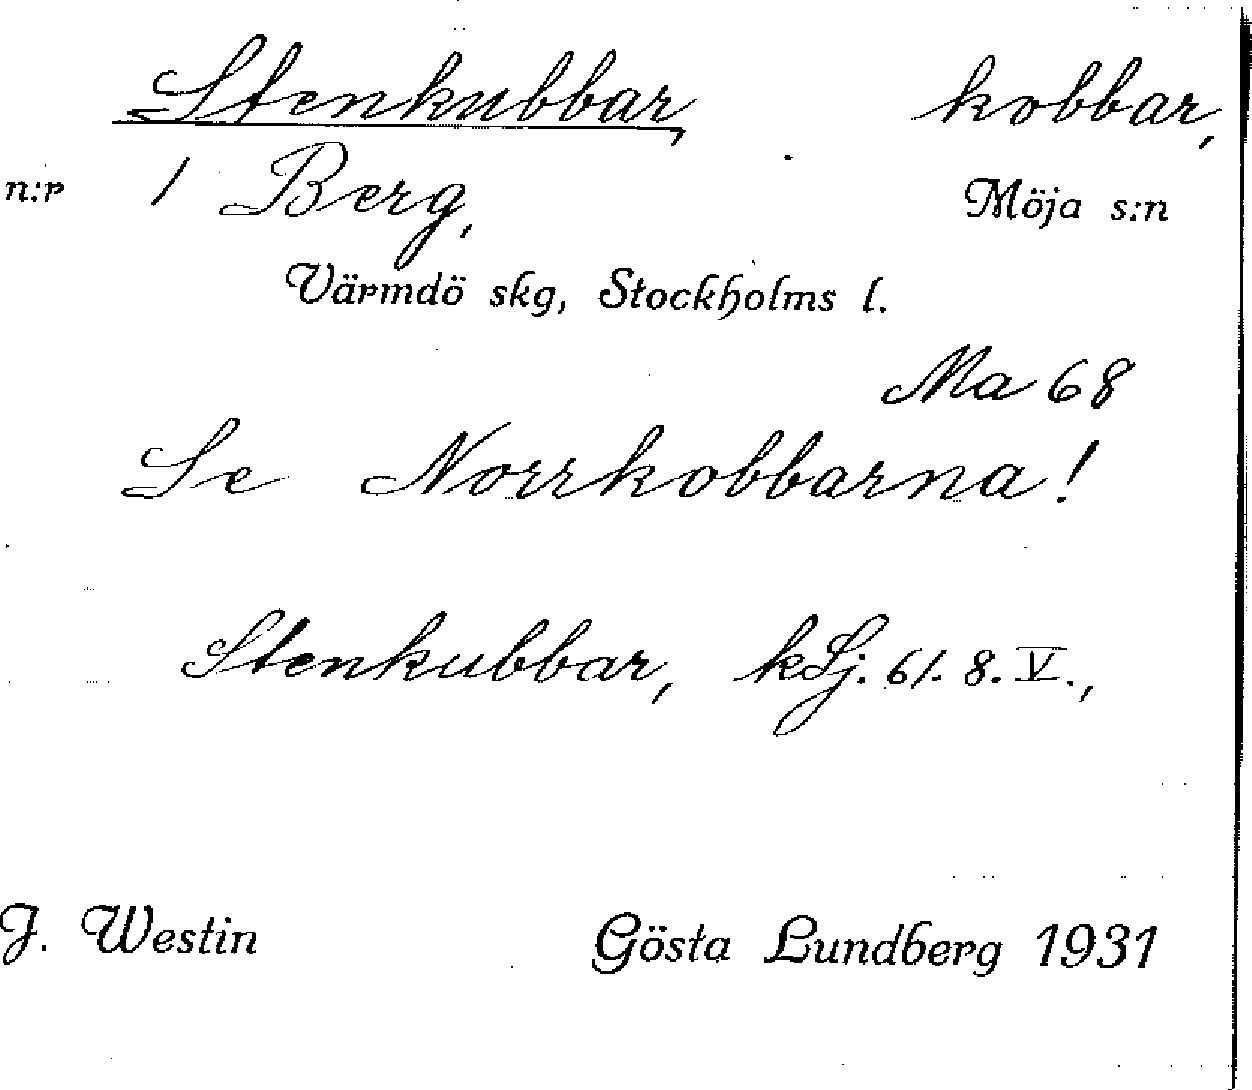 Stenkubbar, kobbar,
n:r 1 Berg, Möja s:n
Värmdö skg, Stockholms l.
Ma 68
Se Norrkobbarna!
Stenkubbar, kSj. 61. 8. V.,
J. Westin Gösta Lundberg 1931